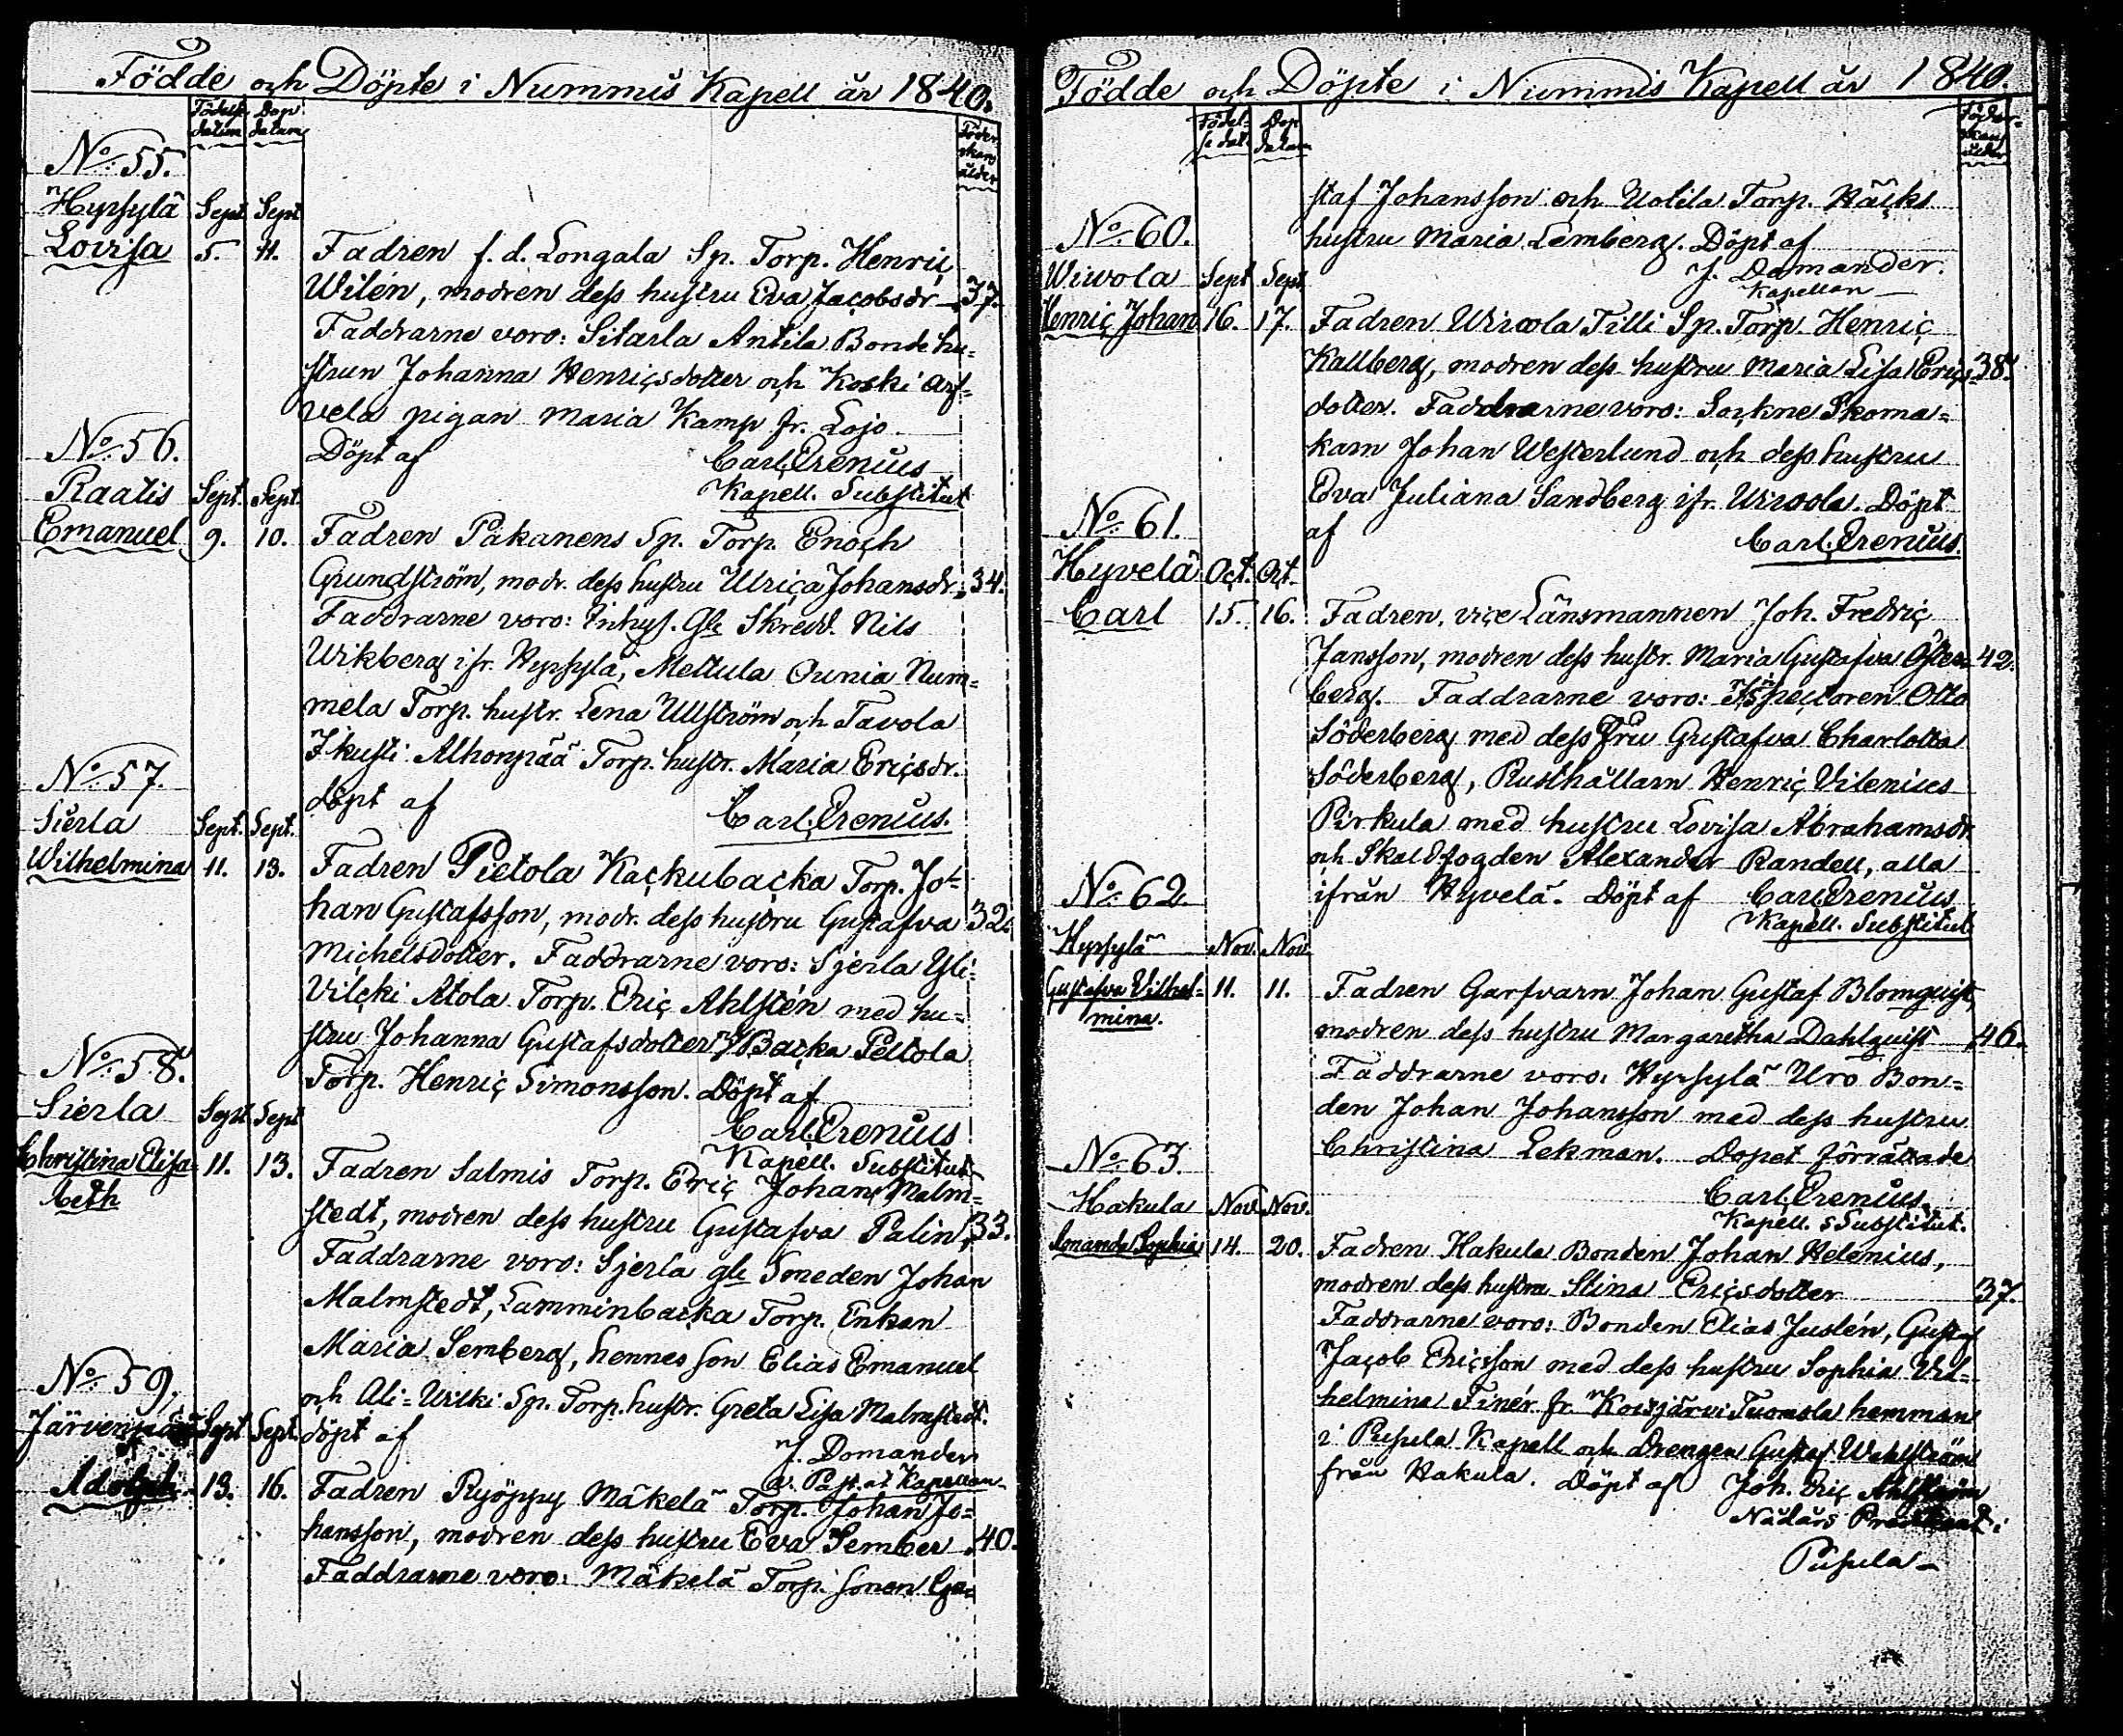 Födde och Döpte i Nummis Kapell år 1840.
Födelse datum
Dop datum
Föderskans ålder
No: 55.
Hyrsylä Sept. Sept.
Lovisa 5. 11. Fadren f. d. Longala Sp. Torp. Henric
Wilén, modren dess hustru Eva Jacobsdr 37.
Faddrarne voro: Sitarla Antila Bonde hu=
strun Johanna Henricsdotter och Koski Arf=
vela pigan Maria Kamp fr. Lojo
Döpt af Carl Crenius
Kapell. Substitut
No: 56.
Raatis Sept. Sept.
Emanuel 9. 10. Fadren Pakanens Sp. Torp. Enoch
Grundström, modr. dess hustru Ulrica Johansdr. 34.
Faddrarne voro: Inhys. Gle Skredd. Nils
Wikberg ifr. Hyrsylä, Mettula Ounia Num=
mela Torp. hustr. Lena Ullström och Tavola
Alhonpää Torp. hustr. Maria Ericsdr.
döpt af Carl Crenius.
No: 57.
Sierla Sept. Sept.
Wilhelmina 11. 13. Fadren Pietola Kackubacka Torp. Jo=
han Gustafsson, modr. dess hustru Gustafva 32.
Michelsdotter. Faddrarne voro: Sjerla Yli=
Vilcki Atola Torp. Eric Ahlstén med hu=
stru Johanna Gustafsdotter Backa Peltola
Torp. Henric Simonsson. Döpt af
Carl Crenius
Kapell. Substitut
No: 58.
Sierla Sept. Sept.
Christina Elisa= 11. 13. Fadren Salmis Torp. Eric Johan Malm=
beth
stedt, modren dess hustru Gustafva Palin, 33.
Faddrarne voro: Sjerla gle Smeden Johan
Malmstedt, Lamminbacka Torp. Enkan
Maria Semberg, hennes son Elias Emanuel
och Ali=Wilki Sp. Torp. hustr. Greta Lisa Malmstedt.
döpt af J. Domander
v. Past. at Kapellan
No: 59.
Järvenpää Sept. Sept.
Adolph 13. 16. Fadren Ryöppy Mäkelä Torp. Johan Jo=
hansson, modren dess hustru Eva Sember 40.
Faddrarne voro: Mäkelä Torp. sonen Gu=
Födde och Döpte i Nummis Kapell år 1840.
Födel=se dat.
Dop datum
Föderskans ålder
staf Johansson och Uotila Torp. Häcks
hustru Maria Lemberg. Döpt af
J. Domander.
Kapellan
No: 60.
Wiwola Sept Sept
Henric Johan 16. 17. Fadren Wiwola Tilli Sp. Torp. Henric
Kallberg, modren dess hustru Maria Lisa Erics= 38.
dotter. Faddrarne voro: Sockne Skoma=
karn Johan Westerlund och dess hustru
Eva Juliana Sandberg ifr. Wiwola. Döpt
af Carl Crenius.
No: 61.
Hyvelä Oct. Oct.
Carl 15. 16. Fadren, vice Länsmannen Joh. Fredric
Jansson, modren dess hustr. Maria Gustafva Öster= 42.
berg. Faddrarne voro: Inspectoren Otto
Söderberg med dess Fru Gustafva Charlotta
Söderberg, Rusthållarn Henric Vilenius
Pirkula med hustru Lovisa Abrahamsdr.
och Skallfogden Alexander Randell, alla
ifrån Hyvelä. Döpt af Carl Crenius
Kapell. Substitut
No: 62
Hyrsylä Nov. Nov.
Gustafva Vilhel= 11. 11. Fadren Garfvarn Johan Gustaf Blomquist,
mina.
modren dess hustru Margaretha Dahlquist 46.
Faddrarne voro: Hyrsylä Uro Bon=
den Johan Johansson med dess hustru
Christina Lekman. Dopet förrättade
Carl Crenius.
Kapell. Substitut.
No: 63.
Hakula Nov. Nov.
Amanda Sophia 14. 20. Fadren Hakula Bonden Johan Helenius,
modren dess hustru Stina Ericsdotter 37.
Faddrarne voro: Bonden Elias Juslén, Gustaf
Jacob Ericsson med dess hustru Sophia Vil=
helmina Finér fr. Koisjärvi Tuomola hemman
i Pusula Kapell och drengen Gustaf Wahlström
från Hakula. Döpt af Joh. Eric Ahlström
Nådårs Predikant i
Pusula